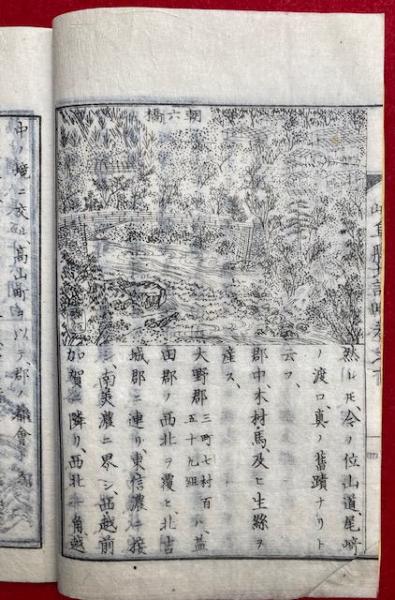 朝六橋
然レ𪜈今ノ位山道、尾崎
ノ渡口、眞ノ舊蹟ナリト
云フ、
郡中、木材馬、及ヒ生絲ヲ
產ス、
大野郡 三町七村百 五十九組 ハ、益
田郡ノ西北ヲ覆ヒ、北吉
城郡ニ連リ、東信濃ニ接
シ、南美濃ニ界シ、西越前
加賀ニ隣リ、西北ノ一角、越
中ノ境ニ交ル、高山町ヲ以テ、郡ノ都會